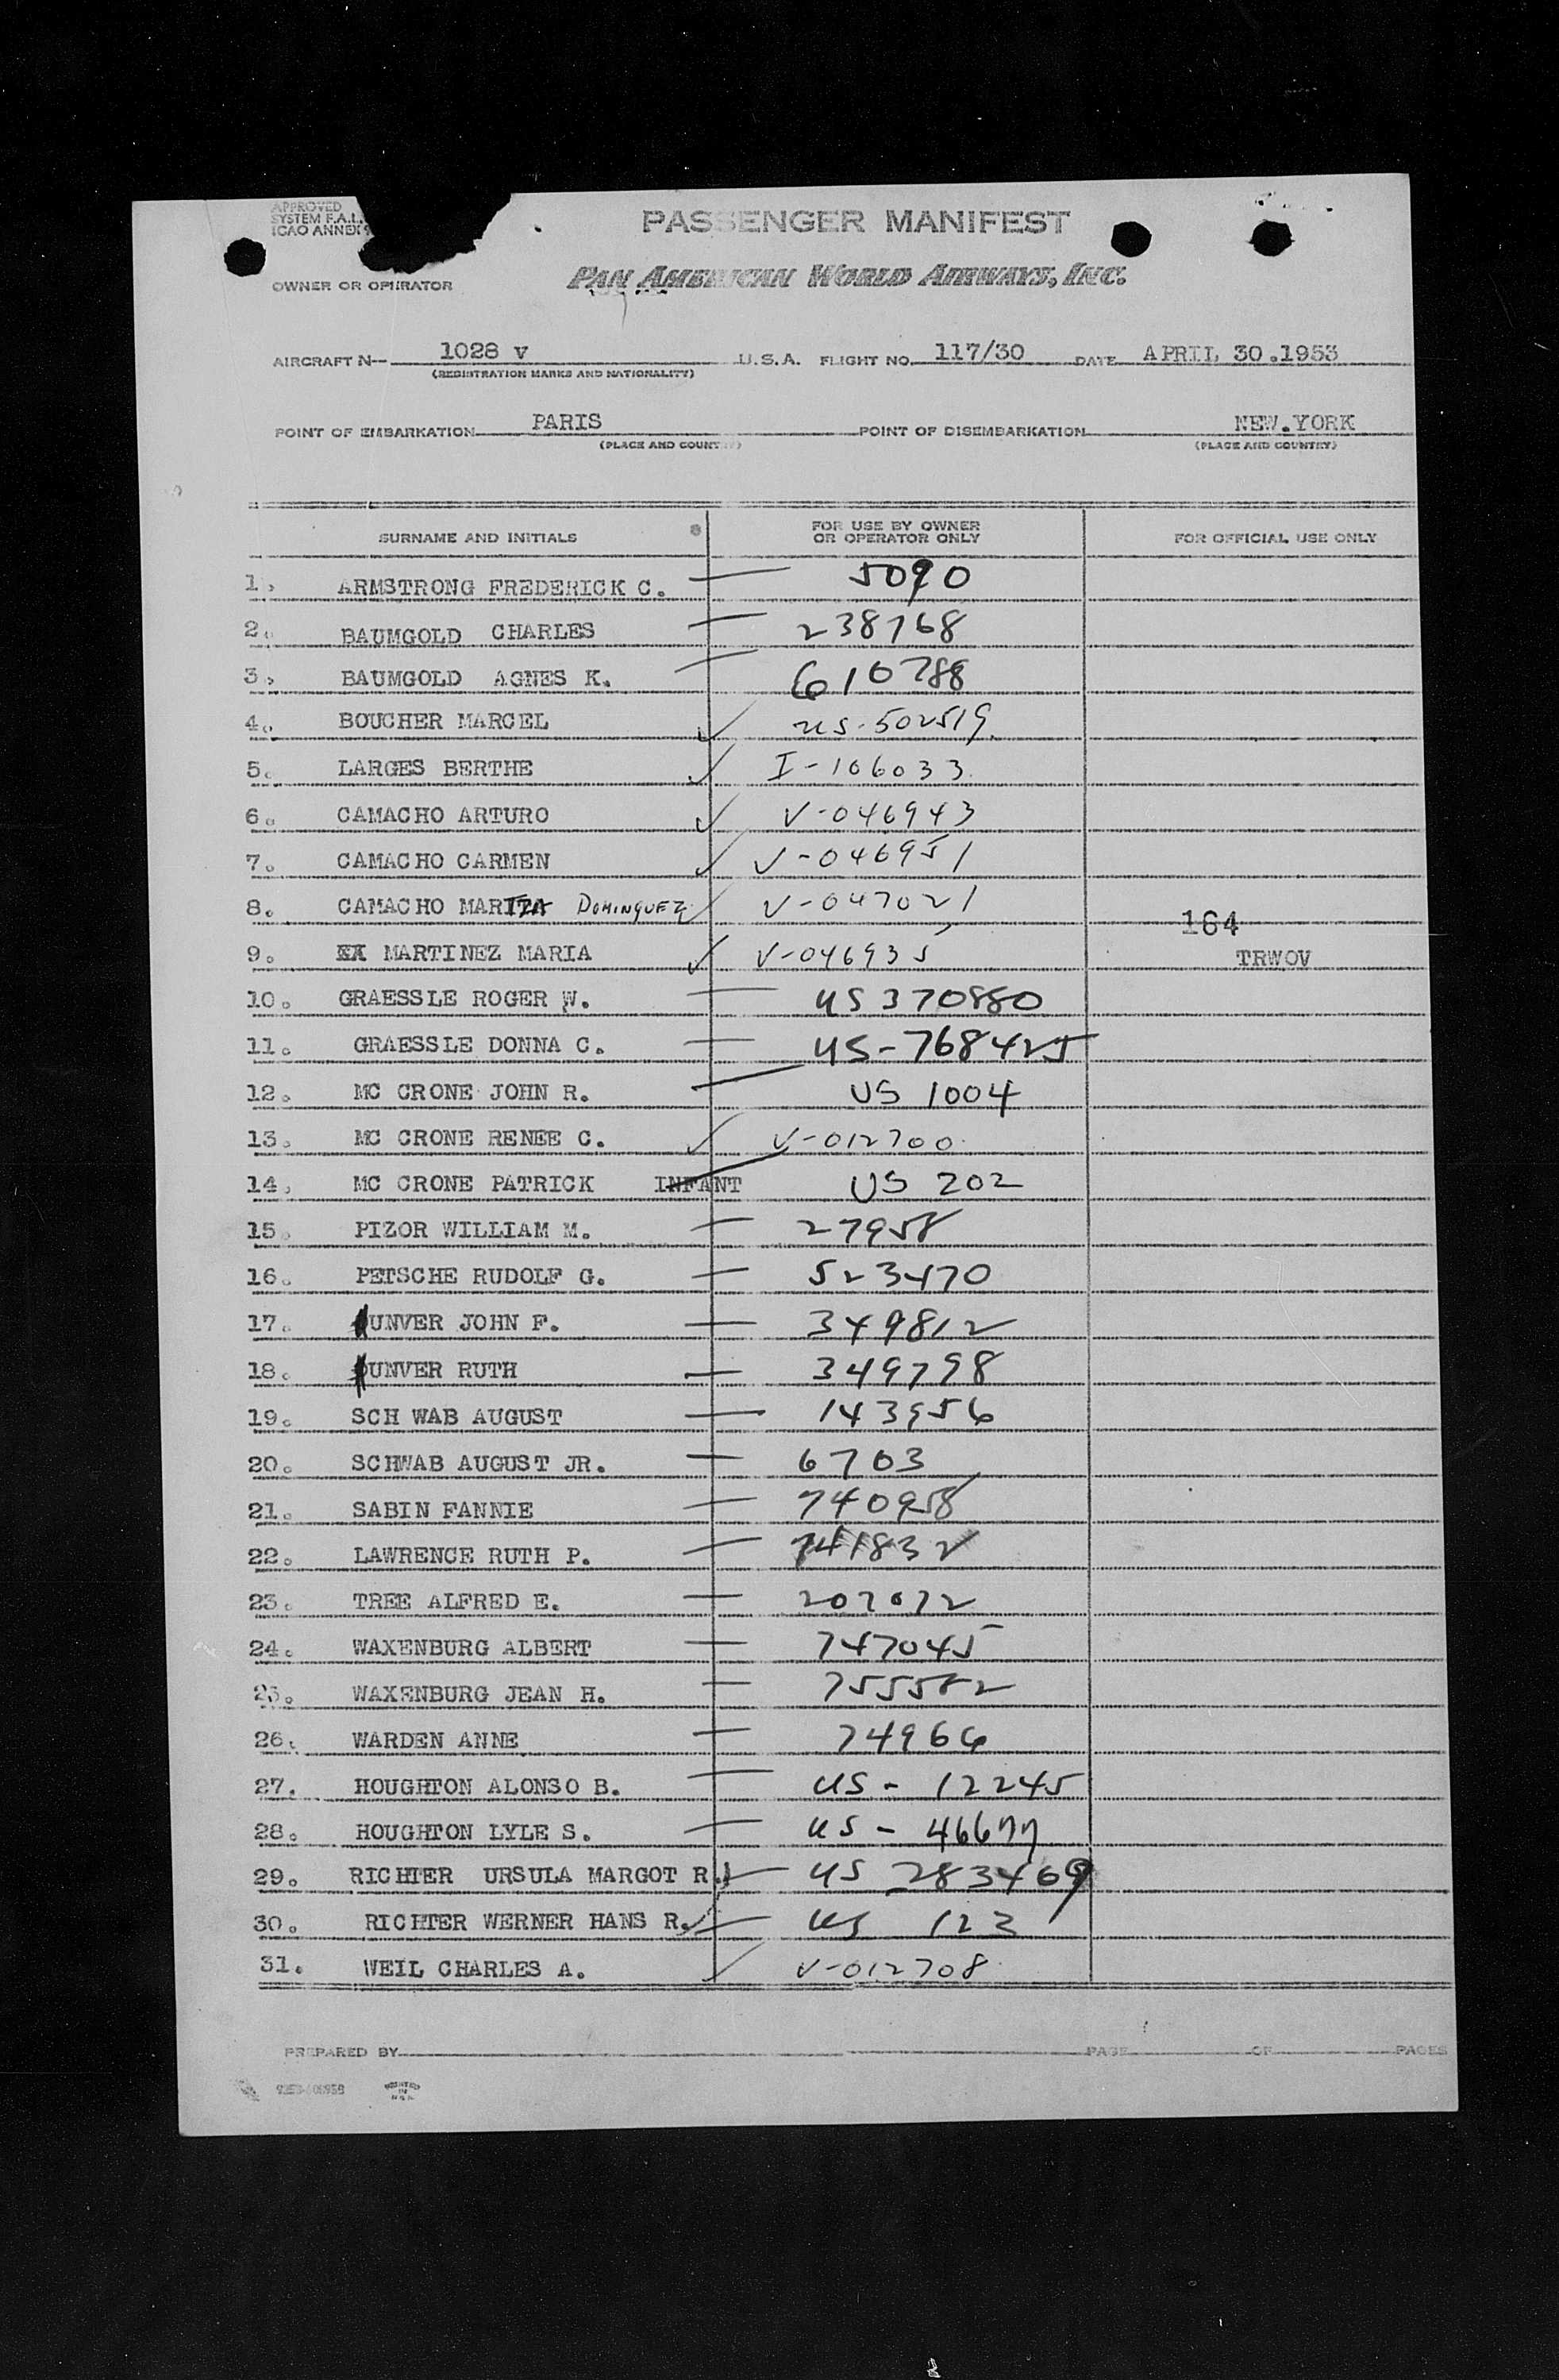 APPROVED
SYSTEM F.A.L.
ICAO ANNEX 9
PASSENGER MANIFEST
OWNER OR OPERATOR PAN AMERICAN WORLD AIRWAYS, INC.
AIRCRAFT N— 1028 V U.S.A. FLIGHT NO. 117/30 DATE APRIL 30.1953
(REGISTRATION MARKS AND NATIONALITY)
POINT OF EMBARKATION PARIS POINT OF DISEMBARKATION NEW.YORK
(PLACE AND COUNTRY) (PLACE AND COUNTRY)
SURNAME AND INITIALS FOR USE BY OWNER OR OPERATOR ONLY FOR OFFICIAL USE ONLY
1. ARMSTRONG FREDERICK C. — 5090
2. BAUMGOLD CHARLES — 238768
3. BAUMGOLD AGNES K. — 610788
4. BOUCHER MARCEL ✓ US-502519.
5. LARGES BERTHE ✓ I-106033
6. CAMACHO ARTURO ✓ V-046943
7. CAMACHO CARMEN ✓ V-046951
8. CAMACHO MARITZA DOMINGUEZ ✓ V-047021 164
9. MARTINEZ MARIA ✓ V-046935 TRWOV
10. GRAESSLE ROGER W. — US 370880
11. GRAESSLE DONNA C. — US-768425
12. MC CRONE JOHN R. — US 1004
13. MC CRONE RENEE C. ✓ V-012700
14. MC CRONE PATRICK INFANT US 202
15. PIZOR WILLIAM M. — 27958
16. PETSCHE RUDOLF G. — 523470
17. UNVER JOHN F. — 349812
18. UNVER RUTH — 349798
19. SCH WAB AUGUST — 143956
20. SCHWAB AUGUST JR. — 6703
21. SABIN FANNIE — 740958
22. LAWRENCE RUTH P. — 741832
23. TREE ALFRED E. — 207072
24. WAXENBURG ALBERT — 747045
25. WAXENBURG JEAN H. — 755582
26. WARDEN ANNE — 74966
27. HOUGHTON ALONSO B. — US - 12245
28. HOUGHTON LYLE S. — US - 46677
29. RICHTER URSULA MARGOT R. — US 283469
30. RICHTER WERNER HANS R. — US 123
31. WEIL CHARLES A. ✓ V-012708
PREPARED BY PAGE OF PAGES